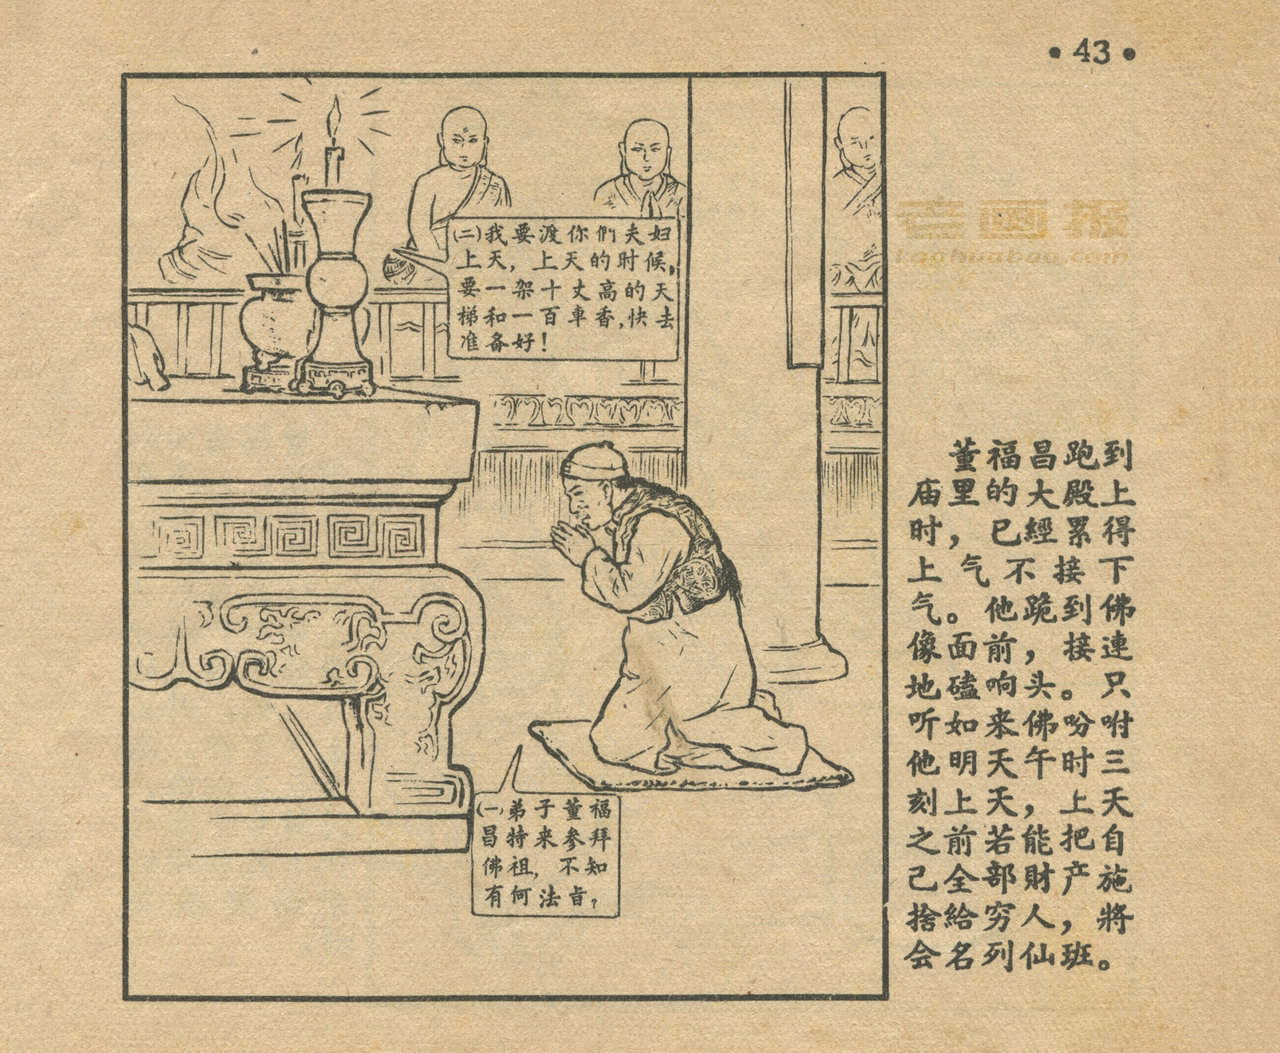 •43•
老画报
laohuabao.com
(二)我要渡你們夫妇
上天，上天的时候，
要一架十丈高的天
梯和一百車香，快去
准备好！
(一)弟子董福
昌特来参拜
佛祖，不知
有何法旨？
董福昌跑到
庙里的大殿上
时，已經累得
上气不接下
气。他跪到佛
像面前，接連
地磕响头。只
听如来佛吩咐
他明天午时三
刻上天，上天
之前若能把自
己全部財产施
捨給穷人，將
会名列仙班。